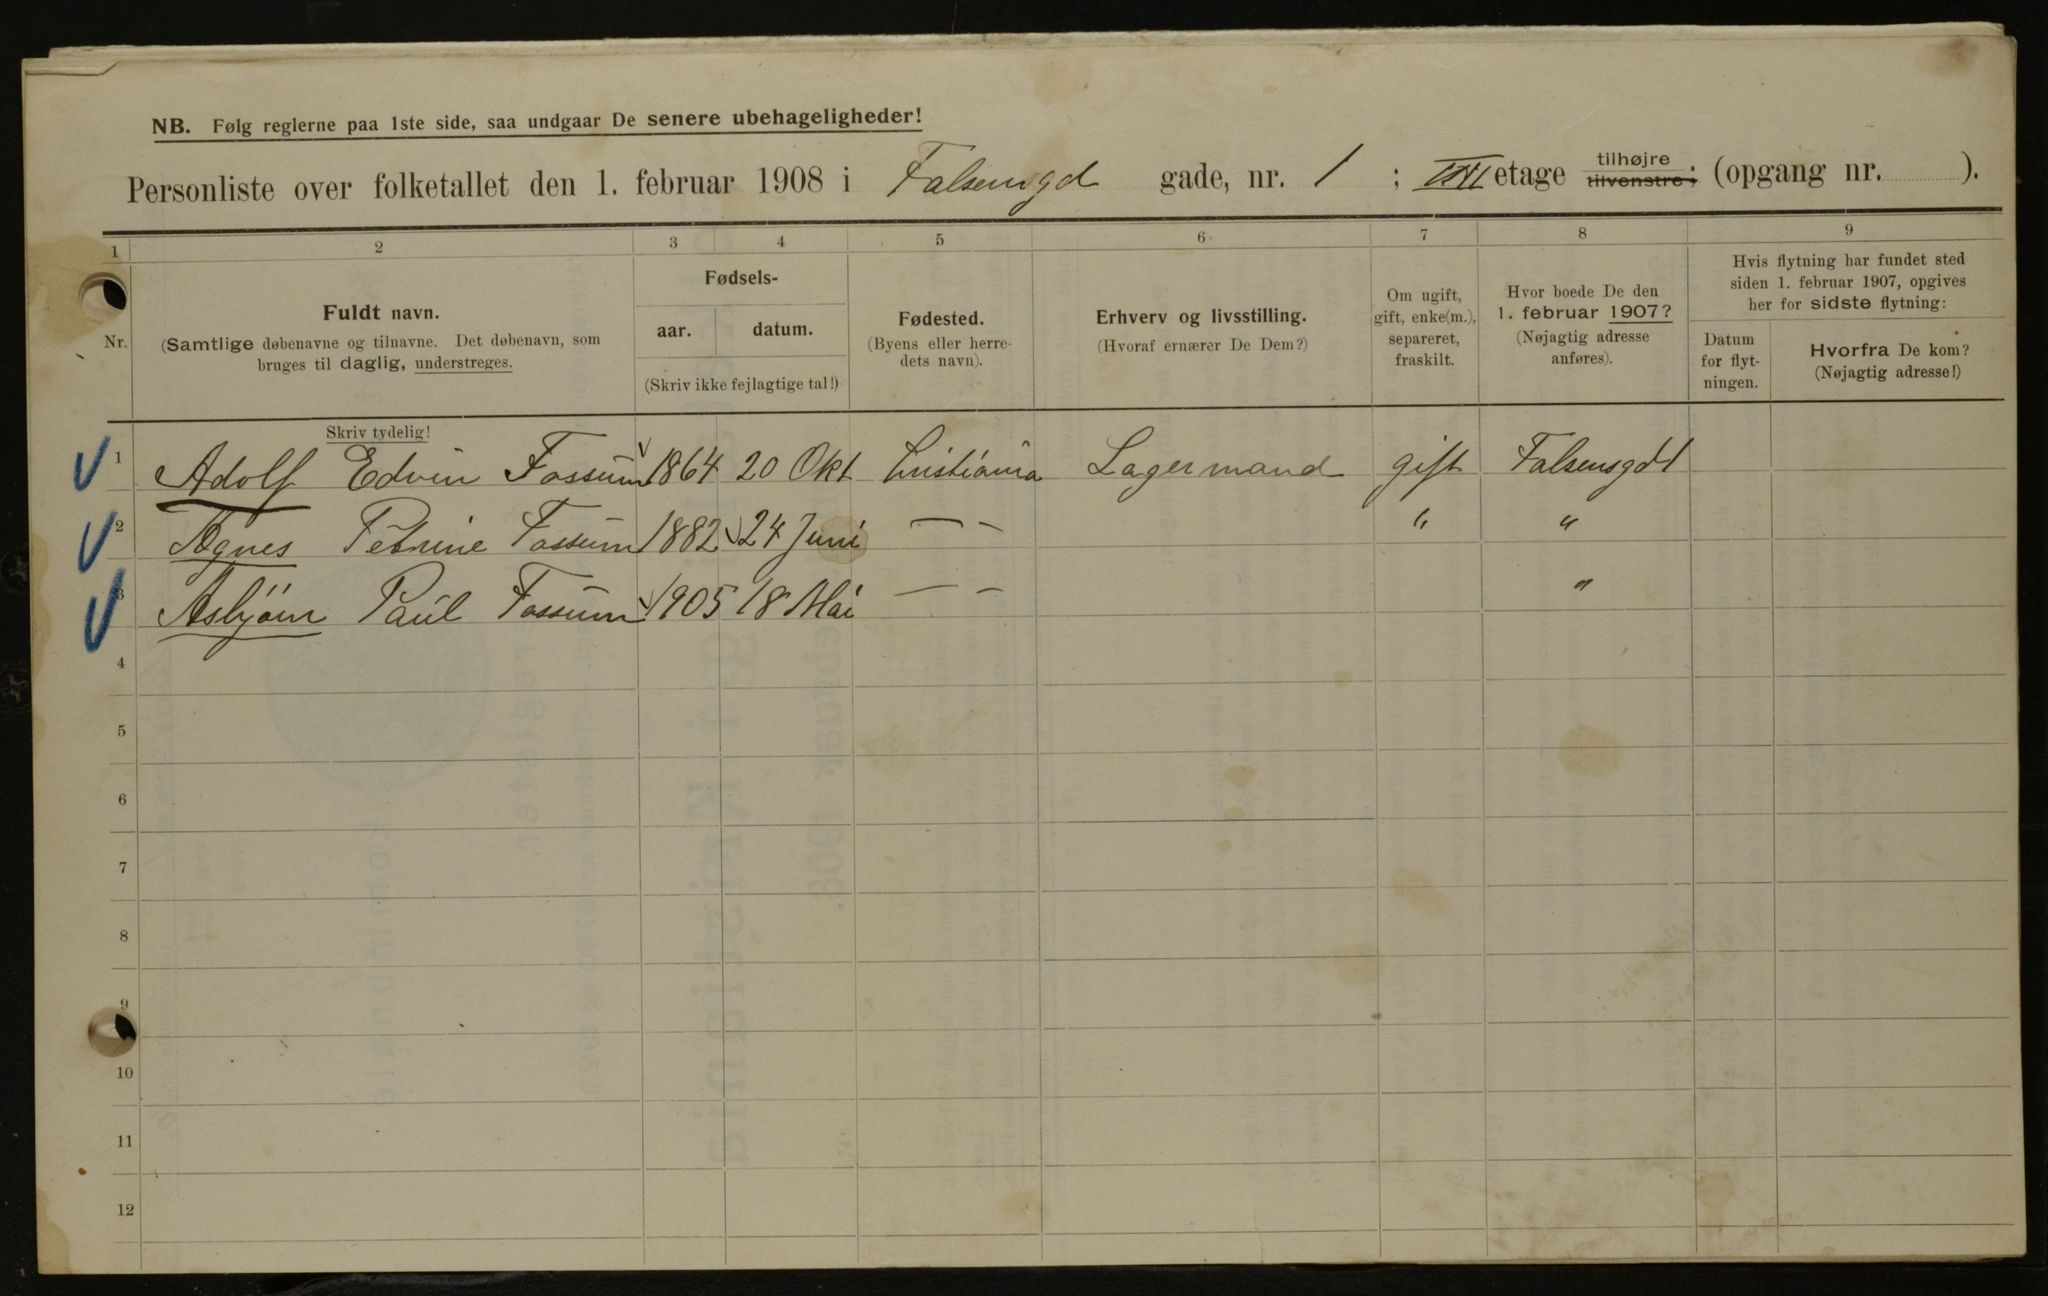 NB. Følg reglerne paa 1ste side, saa undgaar De senere ubehageligheder!
Personliste over folketallet den 1. februar 1908 i Falsensgd gade, nr. 1 ; etage tilhøjre tilvenstre; (opgang nr. ).
1 2 3 4 5 6 7 8 9
Nr.
Fuldt navn.
(Samtlige døbenavne og tilnavne. Det døbenavn, som
bruges til daglig, understreges.
Fødsels-
aar. datum.
(Skriv ikke fejlagtige tal!)
Fødested.
(Byens eller herre-
dets navn).
Erhverv og livsstilling.
(Hvoraf ernærer De Dem?)
Om ugift,
gift, enke(m.),
separeret,
fraskilt.
Hvor boede De den
1. februar 1907?
(Nøjagtig adresse
anføres).
Hvis flytning har fundet sted
siden 1. februar 1907, opgives
her for sidste flytning:
Datum
for flyt-
ningen.
Hvorfra De kom?
(Nøjagtig adresse!)
Skriv tydelig!
1 Adolf Edvin Fossum 1864 20 Okt Cristiania Lagermand gift Falsensgd 1
2 Agnes Petrine Fossum 1882 24 Juni — - " "
3 Asbjørn Paul Fossum 1905 18 Mai — - "
4
5
6
7
8
9
10
11
12